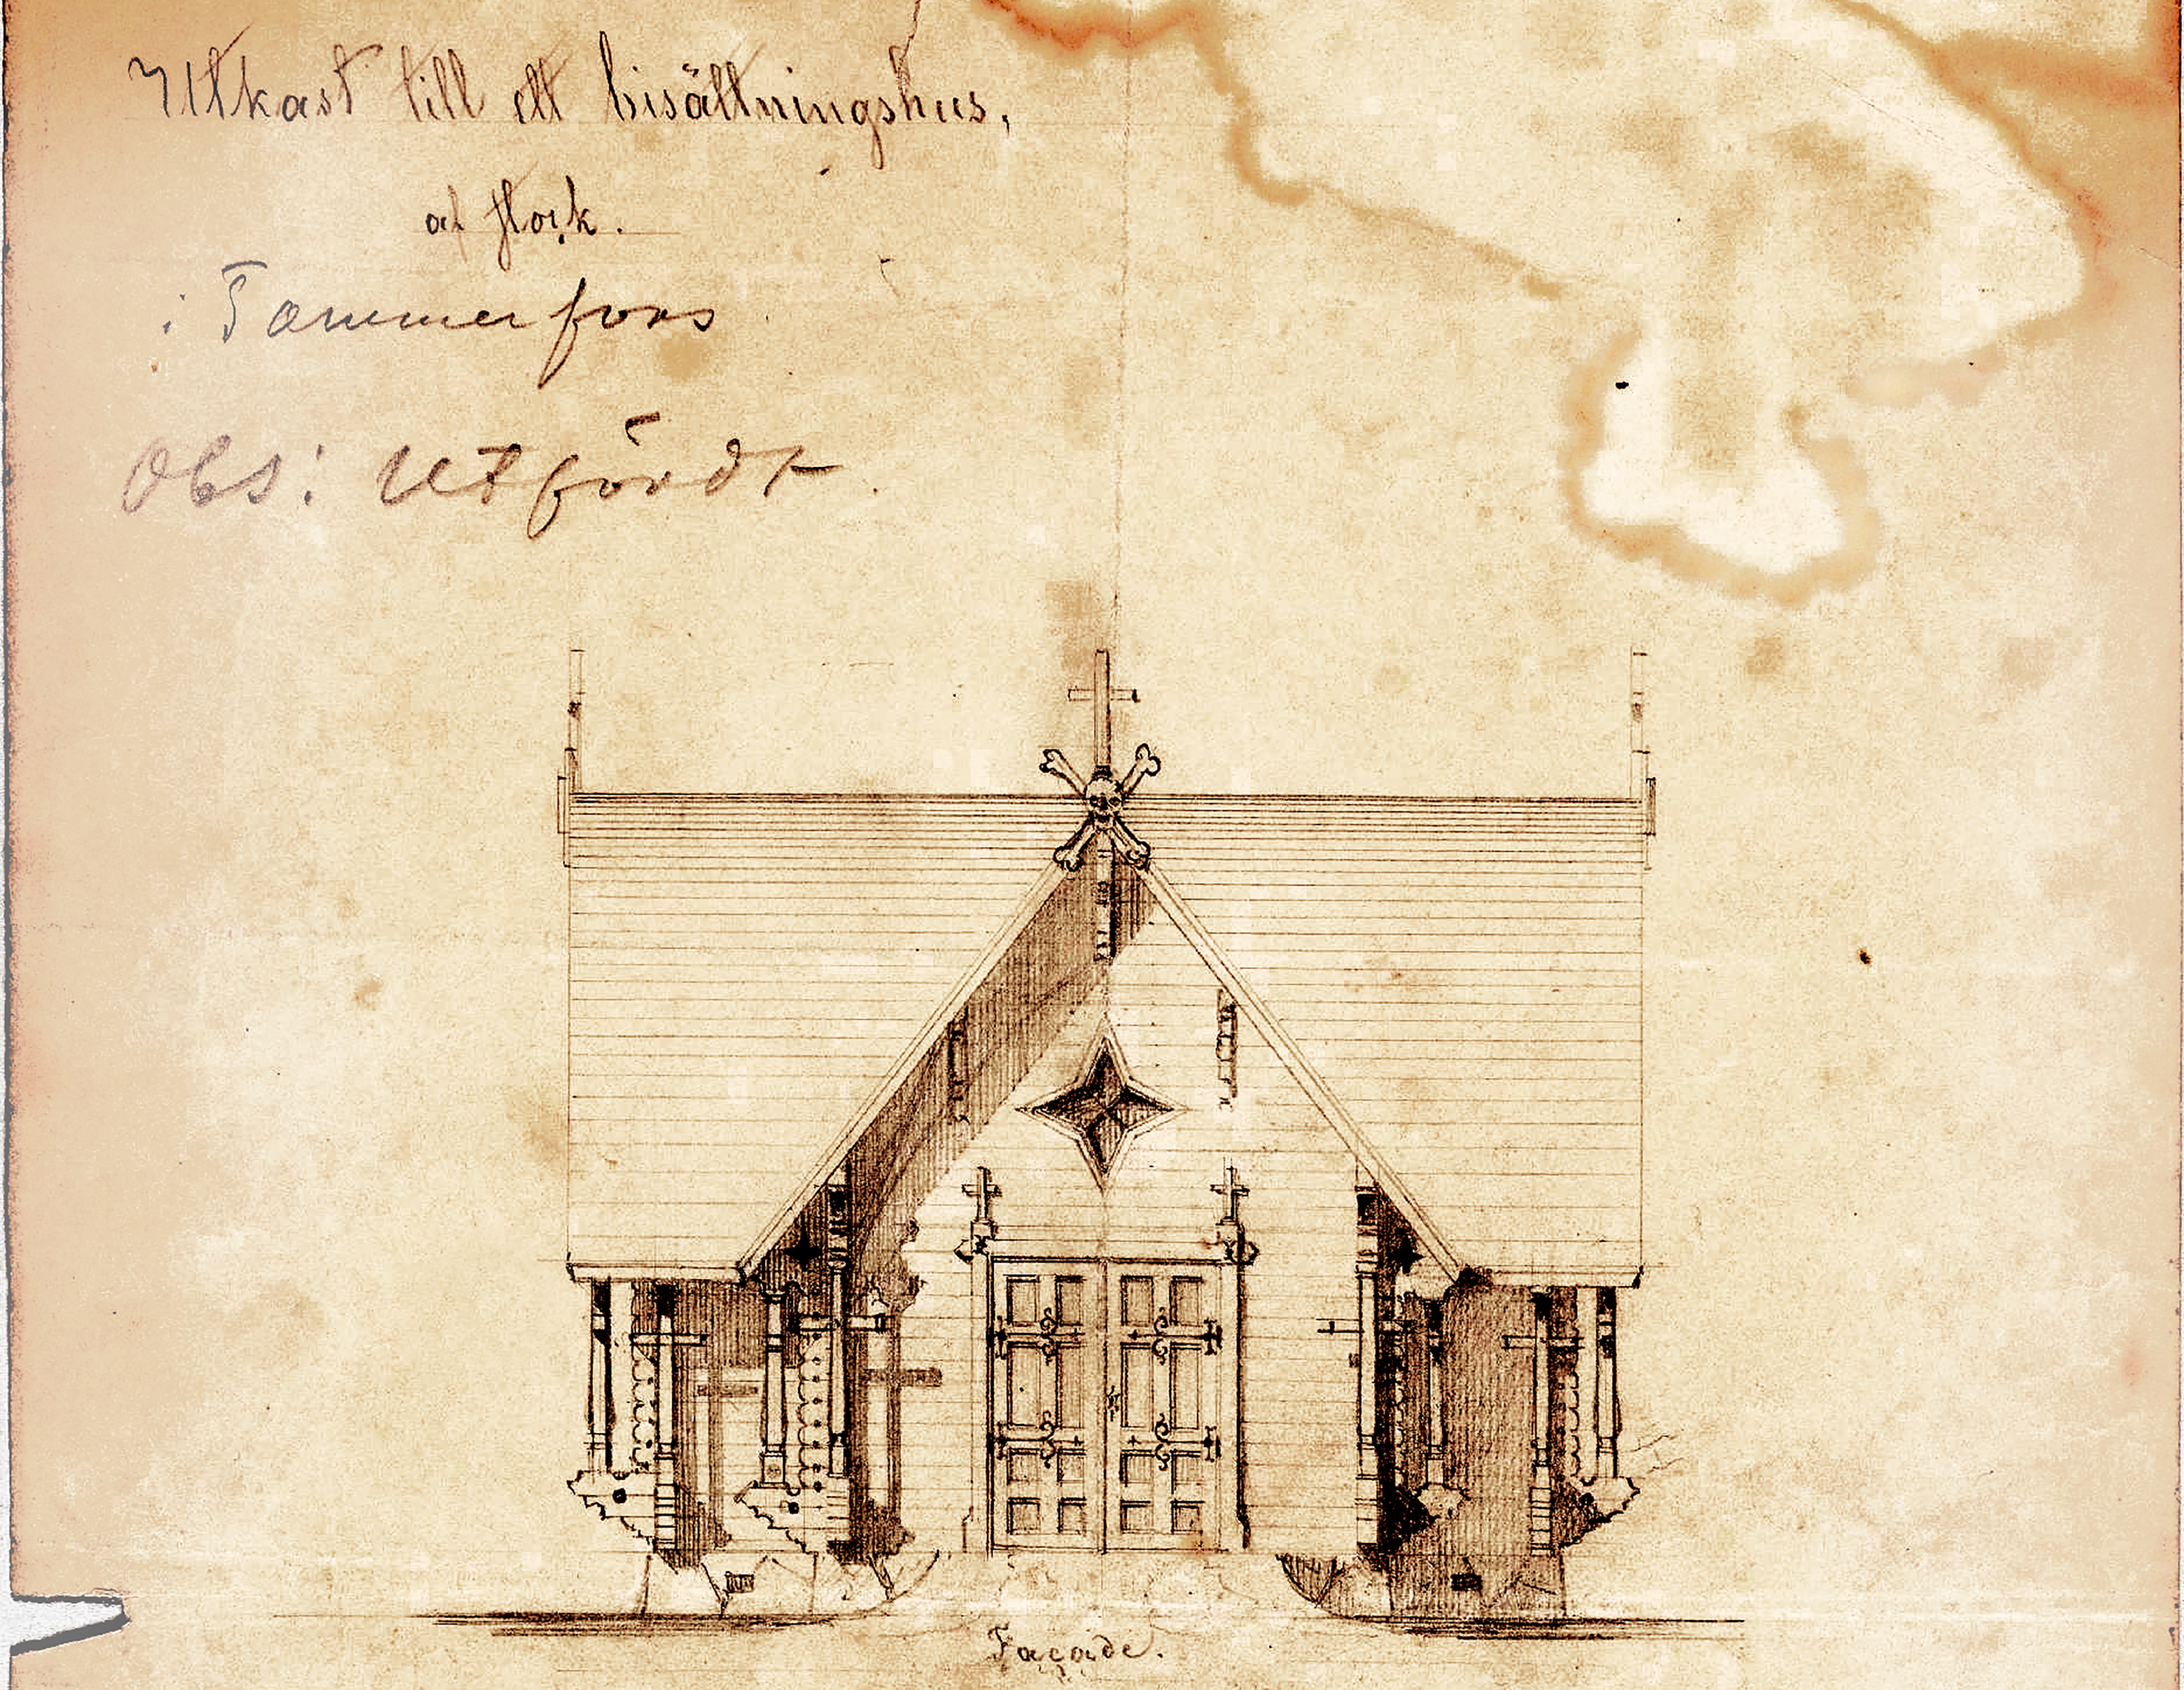 Utkast till ett bisättningshus,
af stock.
i Tammerfors
Obs: Utfördt.
Façade.